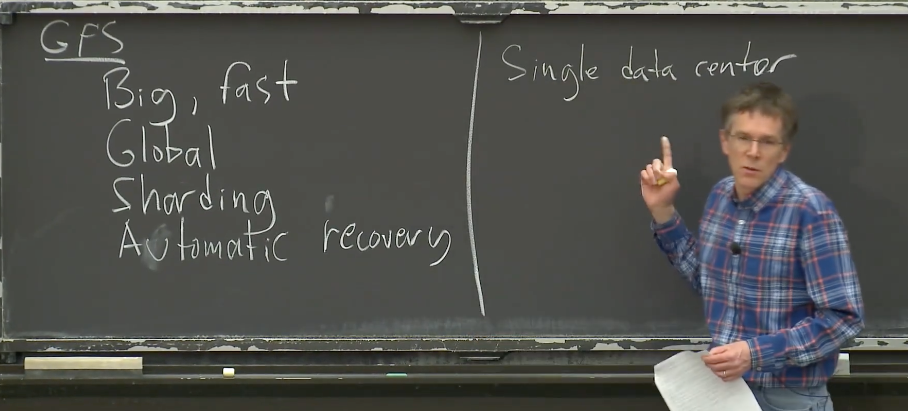 GFS
Big, fast
Global
Sharding
Automatic recovery
Single data center